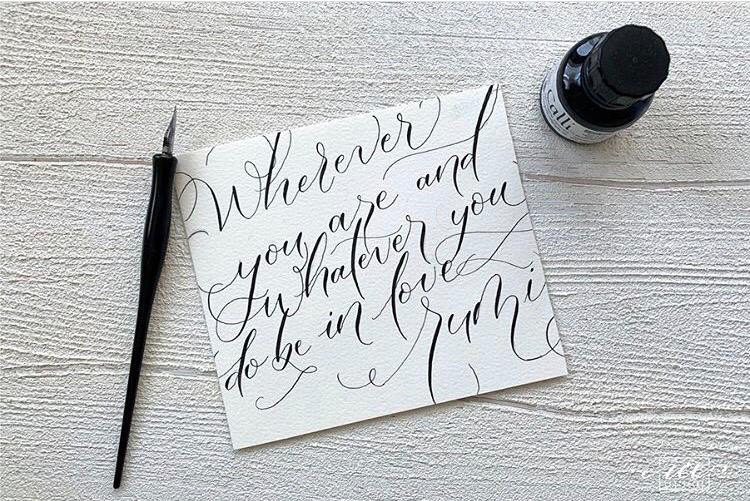 Wherever
you are and
whatever you
do be in love
rumi
Calli